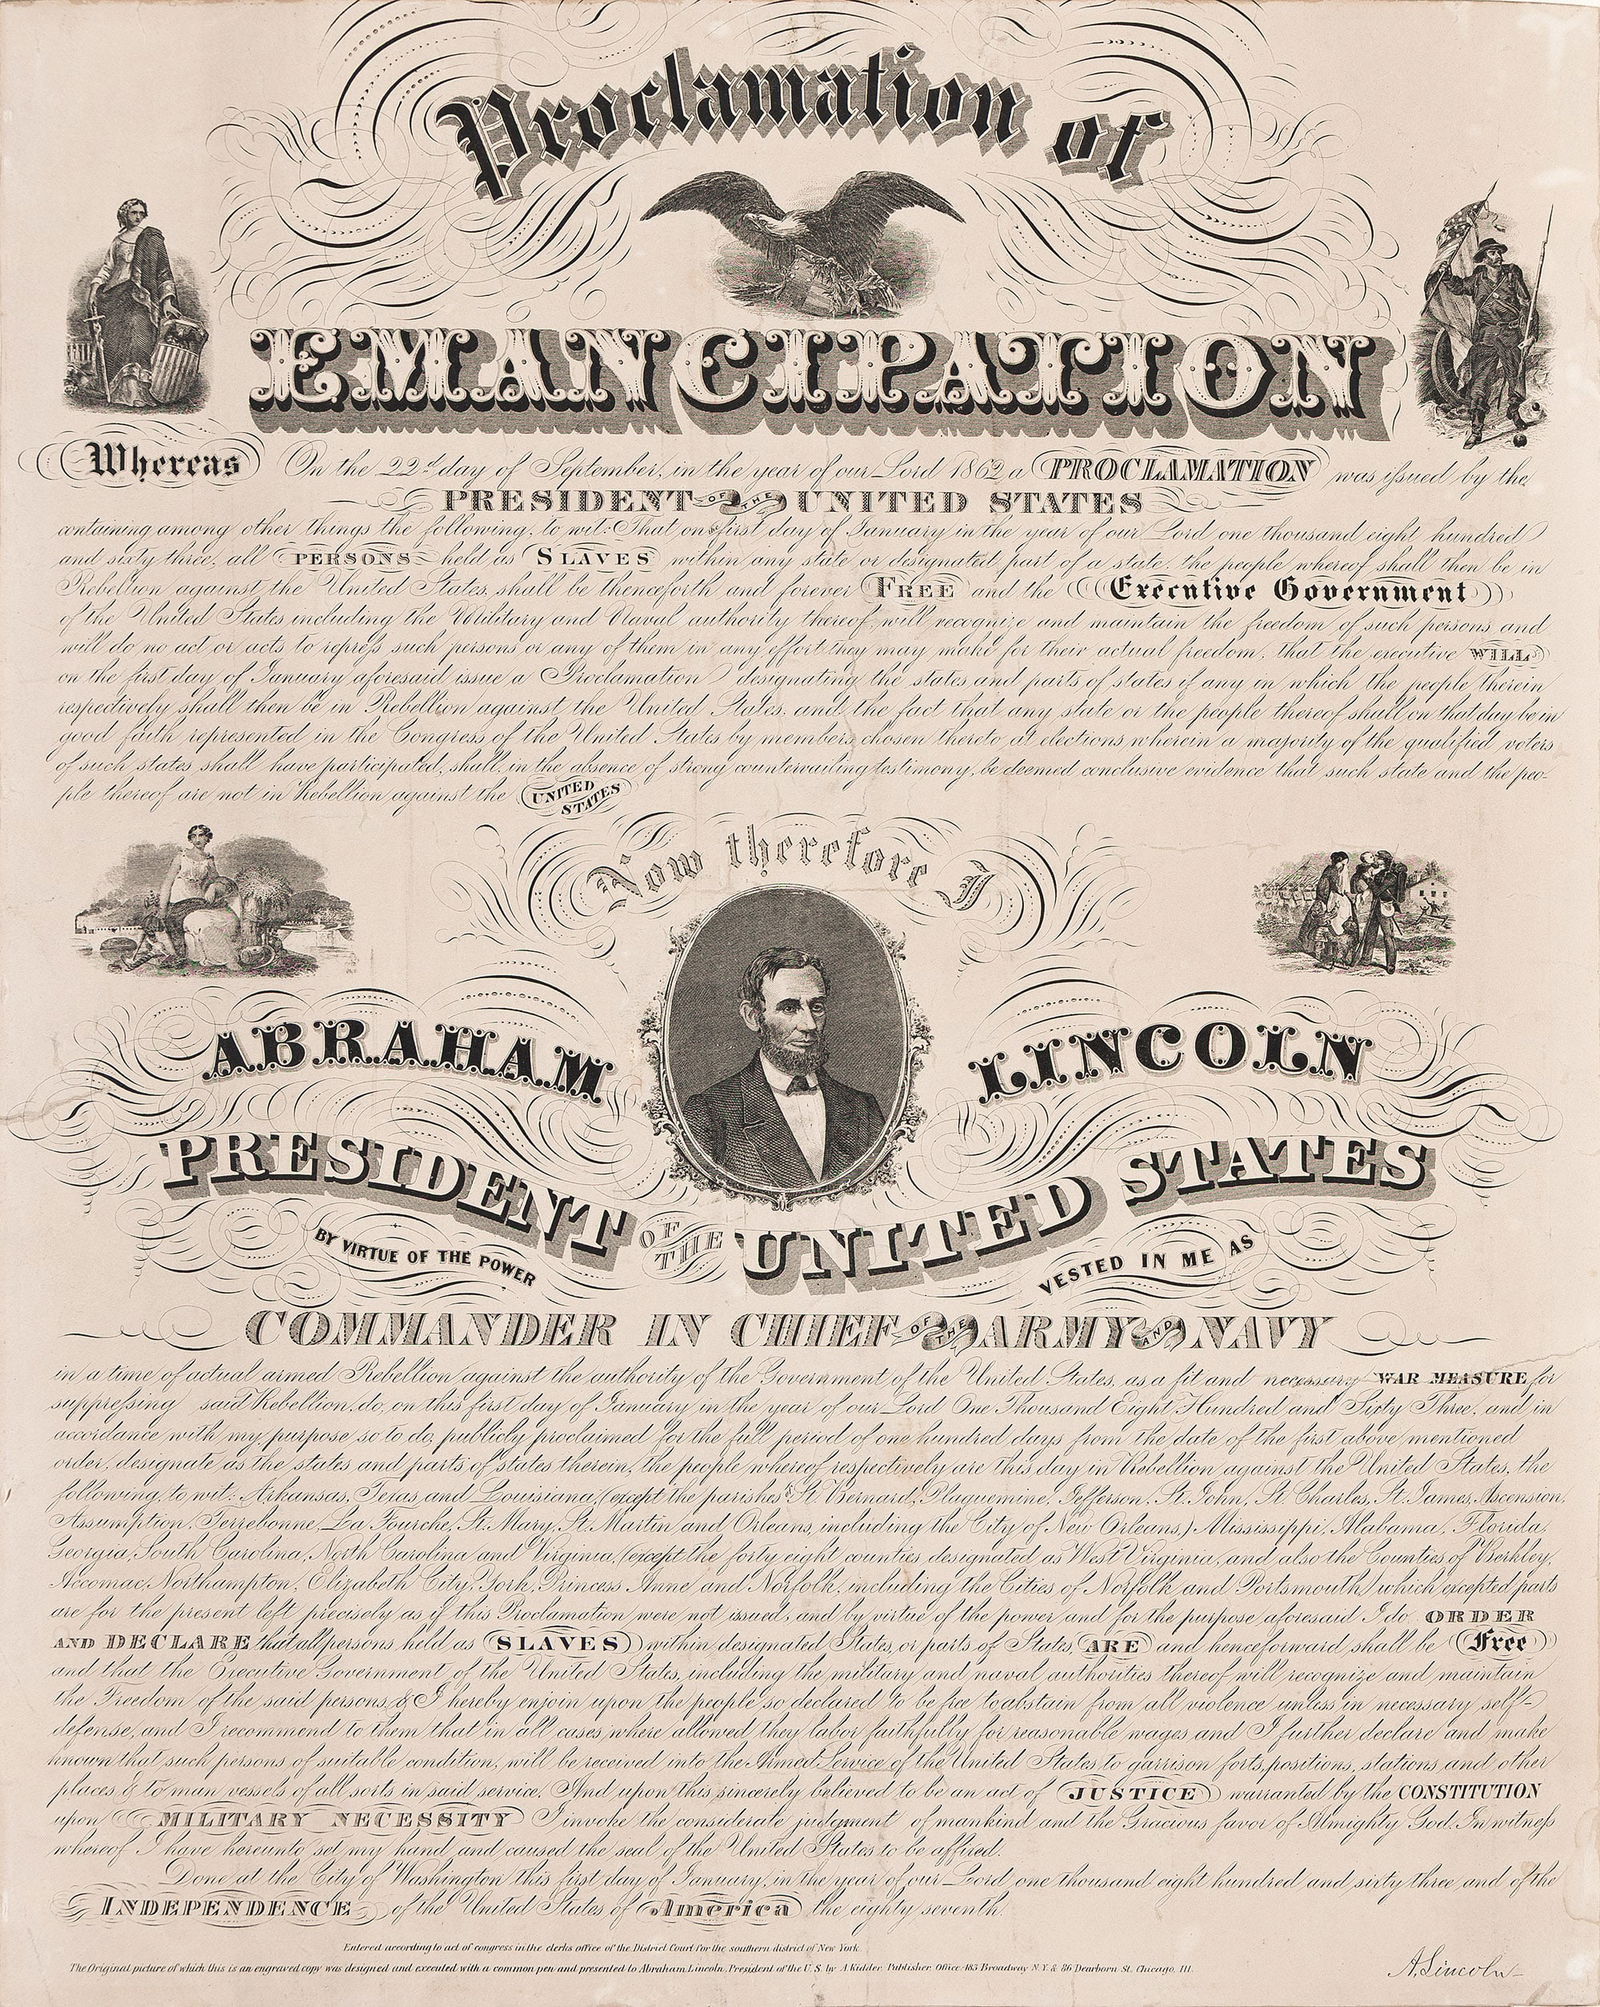 Proclamation of
EMANCIPATION
Whereas On the 22d day of September, in the year of our Lord 1862, a PROCLAMATION was issued by the
PRESIDENT OF THE UNITED STATES
containing among other things the following, to wit: That on first day of January in the year of our Lord one thousand eight hundred
and sixty three, all PERSONS held as SLAVES within any state or designated part of a state, the people whereof shall then be in
Rebellion against the United States, shall be thenceforth and forever FREE and the Executive Government
of the United States including the Military and Naval authority thereof, will recognize and maintain the freedom of such persons and
will do no act or acts to repress such persons or any of them in any effort they may make for their actual freedom. that the executive WILL
on the first day of January aforesaid issue a Proclamation designating the states and parts of states if any in which the people therein
respectively shall then be in Rebellion against the United States. and the fact that any state or the people thereof shall on that day be in
good faith represented in the Congress of the United States by members chosen thereto at elections wherein a majority of the qualified voters
of such states shall have participated, shall, in the absence of strong countervailing testimony, be deemed conclusive evidence that such state and the peo-
ple thereof are not in Rebellion against the UNITED STATES
Now therefore I
ABRAHAM LINCOLN
PRESIDENT OF THE UNITED STATES
BY VIRTUE OF THE POWER VESTED IN ME AS
COMMANDER IN CHIEF OF THE ARMY AND NAVY
in a time of actual armed Rebellion against the authority of the Government of the United States, as a fit and necessary WAR MEASURE for
suppressing said Rebellion, do, on this first day of January, in the year of our Lord One Thousand Eight Hundred and Sixty Three, and in
accordance with my purpose so to do, publicly proclaimed for the full period of one hundred days from the date of the first above mentioned
order, designate as the states and parts of states therein, the people whereof respectively are this day in Rebellion against the United States, the
following, to wit: Arkansas, Texas, and Louisiana, (except the parishes St Bernard, Plaquemine, Jefferson, St. John, St. Charles, St. James, Ascension,
Assumption, Terrebonne, La Fourche, St. Mary, St. Martin and Orleans, including the City of New Orleans,) Mississippi, Alabama, Florida,
Georgia, South Carolina, North Carolina and Virginia, (except the forty eight counties designated as West Virginia, and also the Counties of Berkley,
Accomac, Northampton, Elizabeth City, York, Princess Anne and Norfolk, including the Cities of Norfolk and Portsmouth) which excepted parts
are for the present left precisely as if this Proclamation were not issued; and by virtue of the power and for the purpose aforesaid I do ORDER
AND DECLARE that all persons held as SLAVES within designated States, or parts of States, ARE and henceforward shall be Free
and that the Executive Government of the United States, including the military and naval authorities thereof will recognize and maintain
the Freedom of the said persons, & I hereby enjoin upon the people so declared to be free to abstain from all violence unless in necessary self-
defense, and I recommend to them that in all cases, where allowed they labor faithfully for reasonable wages and I further declare and make
known that such persons of suitable condition, will be received into the Armed Service of the United States to garrison forts, positions, stations and other
places & to man vessels of all sorts in said service. And upon this sincerely believed to be an act of JUSTICE warranted by the CONSTITUTION
upon MILITARY NECESSITY I invoke the considerate judgment of mankind and the Gracious favor of Almighty God. In witness
whereof I have hereunto set my hand and caused the seal of the United States to be affixed.
Done at the City of Washington this first day of January, in the year of our Lord one thousand eight hundred and sixty three and of the
INDEPENDENCE of the United States of America the eighty seventh.
Entered according to act of congress in the clerks office of the District Court for the southern district of New York
The Original picture of which this is an engraved copy was designed and executed with a common pen and presented to Abraham Lincoln, President of the U. S. by A Kidder, Publisher, Office 483 Broadway N.Y. & 86 Dearborn St. Chicago, Ill.
A. Lincoln